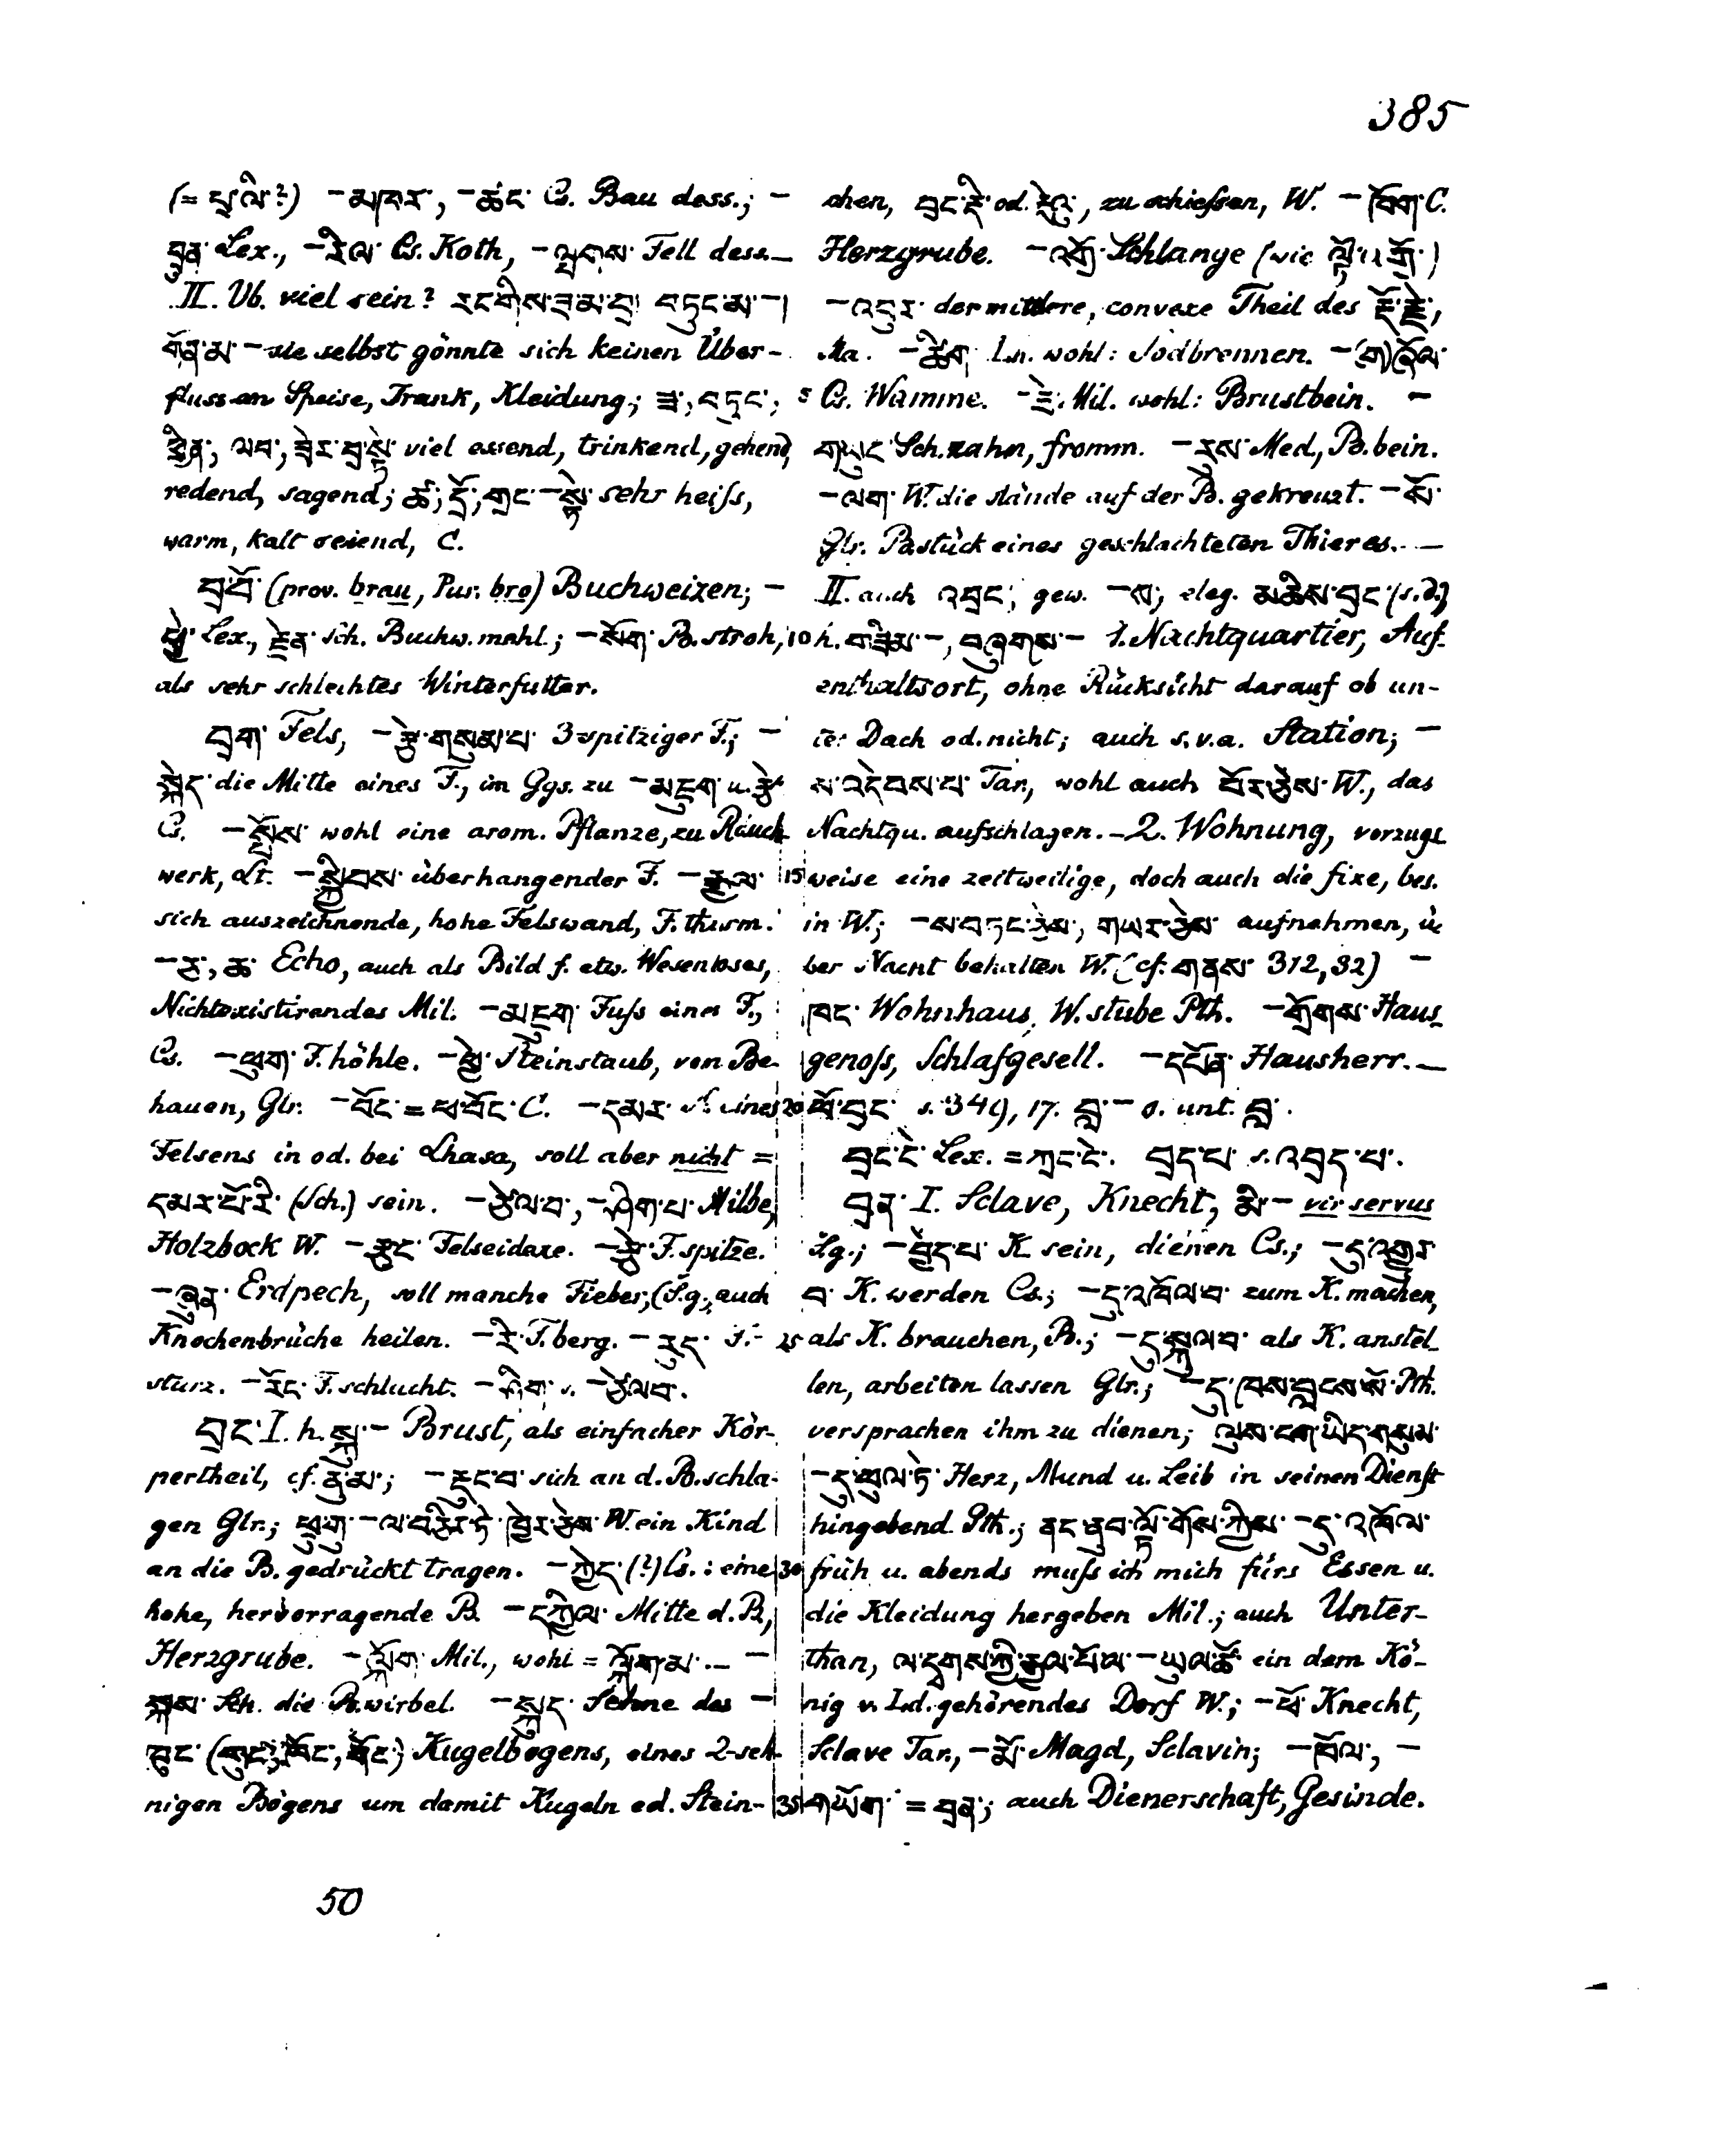 385
(= བྲ་ལི་?) – མཁར་, – ཚང་ Cs. Bau dess.; –
བྲུན་ Lex., – རིལ་ Cs. Koth, – ལྤགས་ Fell dess. –
II. Vb. viel sein? རང་གིས་ཟ་མ་བྲ་ བཏུང་མ་ – །
གོན་མ་ – sie selbst gönnte sich keinen Über-
fluss an Speise, Trank, Kleidung; ཟ་, བཏུང་,
ཕྱིན་, ལབ་, ཟེར་བྲ་སྟེ་ viel essend, trinkend, gehend,
redend, sagend; ཚ་, དྲོ་, གྲང་ – སྟེ་ sehr heiſs,
warm, kalt seiend, C.
བྲ་བོ་ (prov. brau, Pur. bro) Buchweizen; –
ཕྱེ་ Lex., རྗེན་ Sch. Buchw. mehl; – སོག་ B. stroh,
als sehr schlechtes Winterfutter.
བྲག་ Fels, – རྩེ་གསུམ་པ་ 3 spitziger F.; –
སྐེད་ die Mitte eines F., im Ggs. zu – མཇུག་ u. རྩེ་
Cs. – སྤོས་ wohl eine arom. Pflanze, zu Räuch
werk, Lt. – སྐྱིབས་ überhangender F. – རྒྱལ་
sich auszeichnende, hohe Felswand, F. thurm.
– ཅ་, ཆ་ Echo, auch als Bild f. etw. Wesenloses,
Nichtexistirendes Mil. – མཇུག་ Fuſs eines F.,
Cs. – ཕུག་ F. höhle. – ཕྱེ་ Steinstaub, von Be-
hauen, Glr. – བོང་ = ཕ་བོང་ C. – དམར་ N. eines
Felsens in od. bei Lhasa, soll aber nicht =
དམར་པོ་རི་ (Sch.) sein. – ཙེལ་བ་, – ཤིག་པ་ Milbe,
Holzbock W. – རྩང་ Felseidexe. – རྩེ་ F. spitze.
– ཞུན་ Erdpech, soll manche Fieber, (S.g., auch
Knochenbrüche heilen. – རི་ F. berg. – རུད་ F.-
sturz. – རོང་ F. schlucht. – ཤིག་ s. – ཙེལབ་.
བྲང་ I. h. སྐུ་ – Brust, als einfacher Kör-
pertheil, cf. ནུ་མ་; – རྡུང་བ་ sich an d. B. schla-
gen Glr.; ཕྲུ་གུ་ – ལ་བཅིར་ཏེ་ཁྱེར་ཅེས་ W. ein Kind
an die B. gedrückt tragen. – ཀྱེད་ (?) Cs.: eine
hohe, hervorragende B. – དཀྱིལ་ Mitte d. B.,
Herzgrube. – སྐོག་ Mil., wohl = ལྐོག་མ་. – –
སྐས་ Sch. die B. wirbel. – སྐུད་ Sehne des –
Kugelbogens, eines 2-seh-
nigen Bogens um damit Kugeln od. Stein-
chen, བྲང་རྡི་ od. རྡེའུ་, zu schieſsen, W. – ཁོག་ C.
Herzgrube. – འགྲོ་ Schlange (wie ལྟོ་འགྲོ་)
– འབུར་ der mittlere, convexe Theil des རྡོ་རྗེ་,
Ma. – ཚིག་ Ln. wohl: Sodbrennen. – (ག)ཞོལ་
5 Cs. Wamme. – ཟེ་ Mil. wohl: Brustbein. –
གཡུང་ Sch. zahm, fromm. – རུས་ Med, B. bein.
– ལག་ W. die Hände auf der B. gekreuzt. – སོ་
Glr. Bastück eines geschlachteten Thieres. –
II. auch འབྲང་, gew. – ས་, eleg. མཆིས་བྲང་ (s.d.)
10 h. གཟིམ་ –, བཞུགས་ – 1. Nachtquartier, Auf-
enthaltsort, ohne Rücksicht darauf ob un-
ter Dach od. nicht; auch s.v.a. Station; –
ས་འདེབས་པ་ Tar., wohl auch བོར་ཅེས་ W., das
Nachtqu. aufschlagen. – 2. Wohnung, vorzugs
15 weise eine zeitweilige, doch auch die fixe, bes.
in W.; – ས་བཏང་ཅེས་, གཡར་ཅེས་ aufnehmen, ü-
ber Nacht behalten W. (cf. གནས་ 312,32) –
ཁང་ Wohnhaus, W. stube Pth. – གྲོགས་ Haus-
genoſs, Schlafgesell. – དཔོན་ Hausherr. –
20 ཕོ་བྲང་ s. 349, 17. བླ་ – s. unt. བླ་.
བྲང་ངེ་ Lex. = ཀྲང་ངེ་. བྲད་པ་ s. འབྲད་པ་.
བྲན་ I. Sclave, Knecht, མི་ – vir servus
S.g.; – བྱེད་པ་ K. sein, dienen Cs.; – དུ་འགྱུར་
བ་ K. werden Cs.; – དུ་འཁོལ་བ་ zum K. machen,
25 als K. brauchen, B.; – དུ་སྐུལ་བ་ als K. anstel-
len, arbeiten lassen Glr.; – དུ་ཁས་བླངས་སོ་ Pth.
versprachen ihm zu dienen; ལུས་ངག་ཡིད་གསུམ་
– དུ་ཕུལ་ཏེ་ Herz, Mund u. Leib in seinen Dienst
hingebend Pth.; ནང་ནུབ་ལྟོ་གོས་ཀྱིས་ – དུ་འཁོལ་
30 früh u. abends muſs ich mich fürs Essen u.
die Kleidung hergeben Mil.; auch Unter-
than, ལ་དྭགས་ཀྱི་རྒྱལ་པོལ་ – ཡུལ་ཚོ་ ein dem Kö-
nig v. Ld. gehörendes Dorf W.; – ཕོ་ Knecht,
Sclave Tar., – མོ་ Magd, Sclavin; – ཁོལ་, –
35 གཡོག་ = བྲན་; auch Dienerschaft, Gesinde.
50